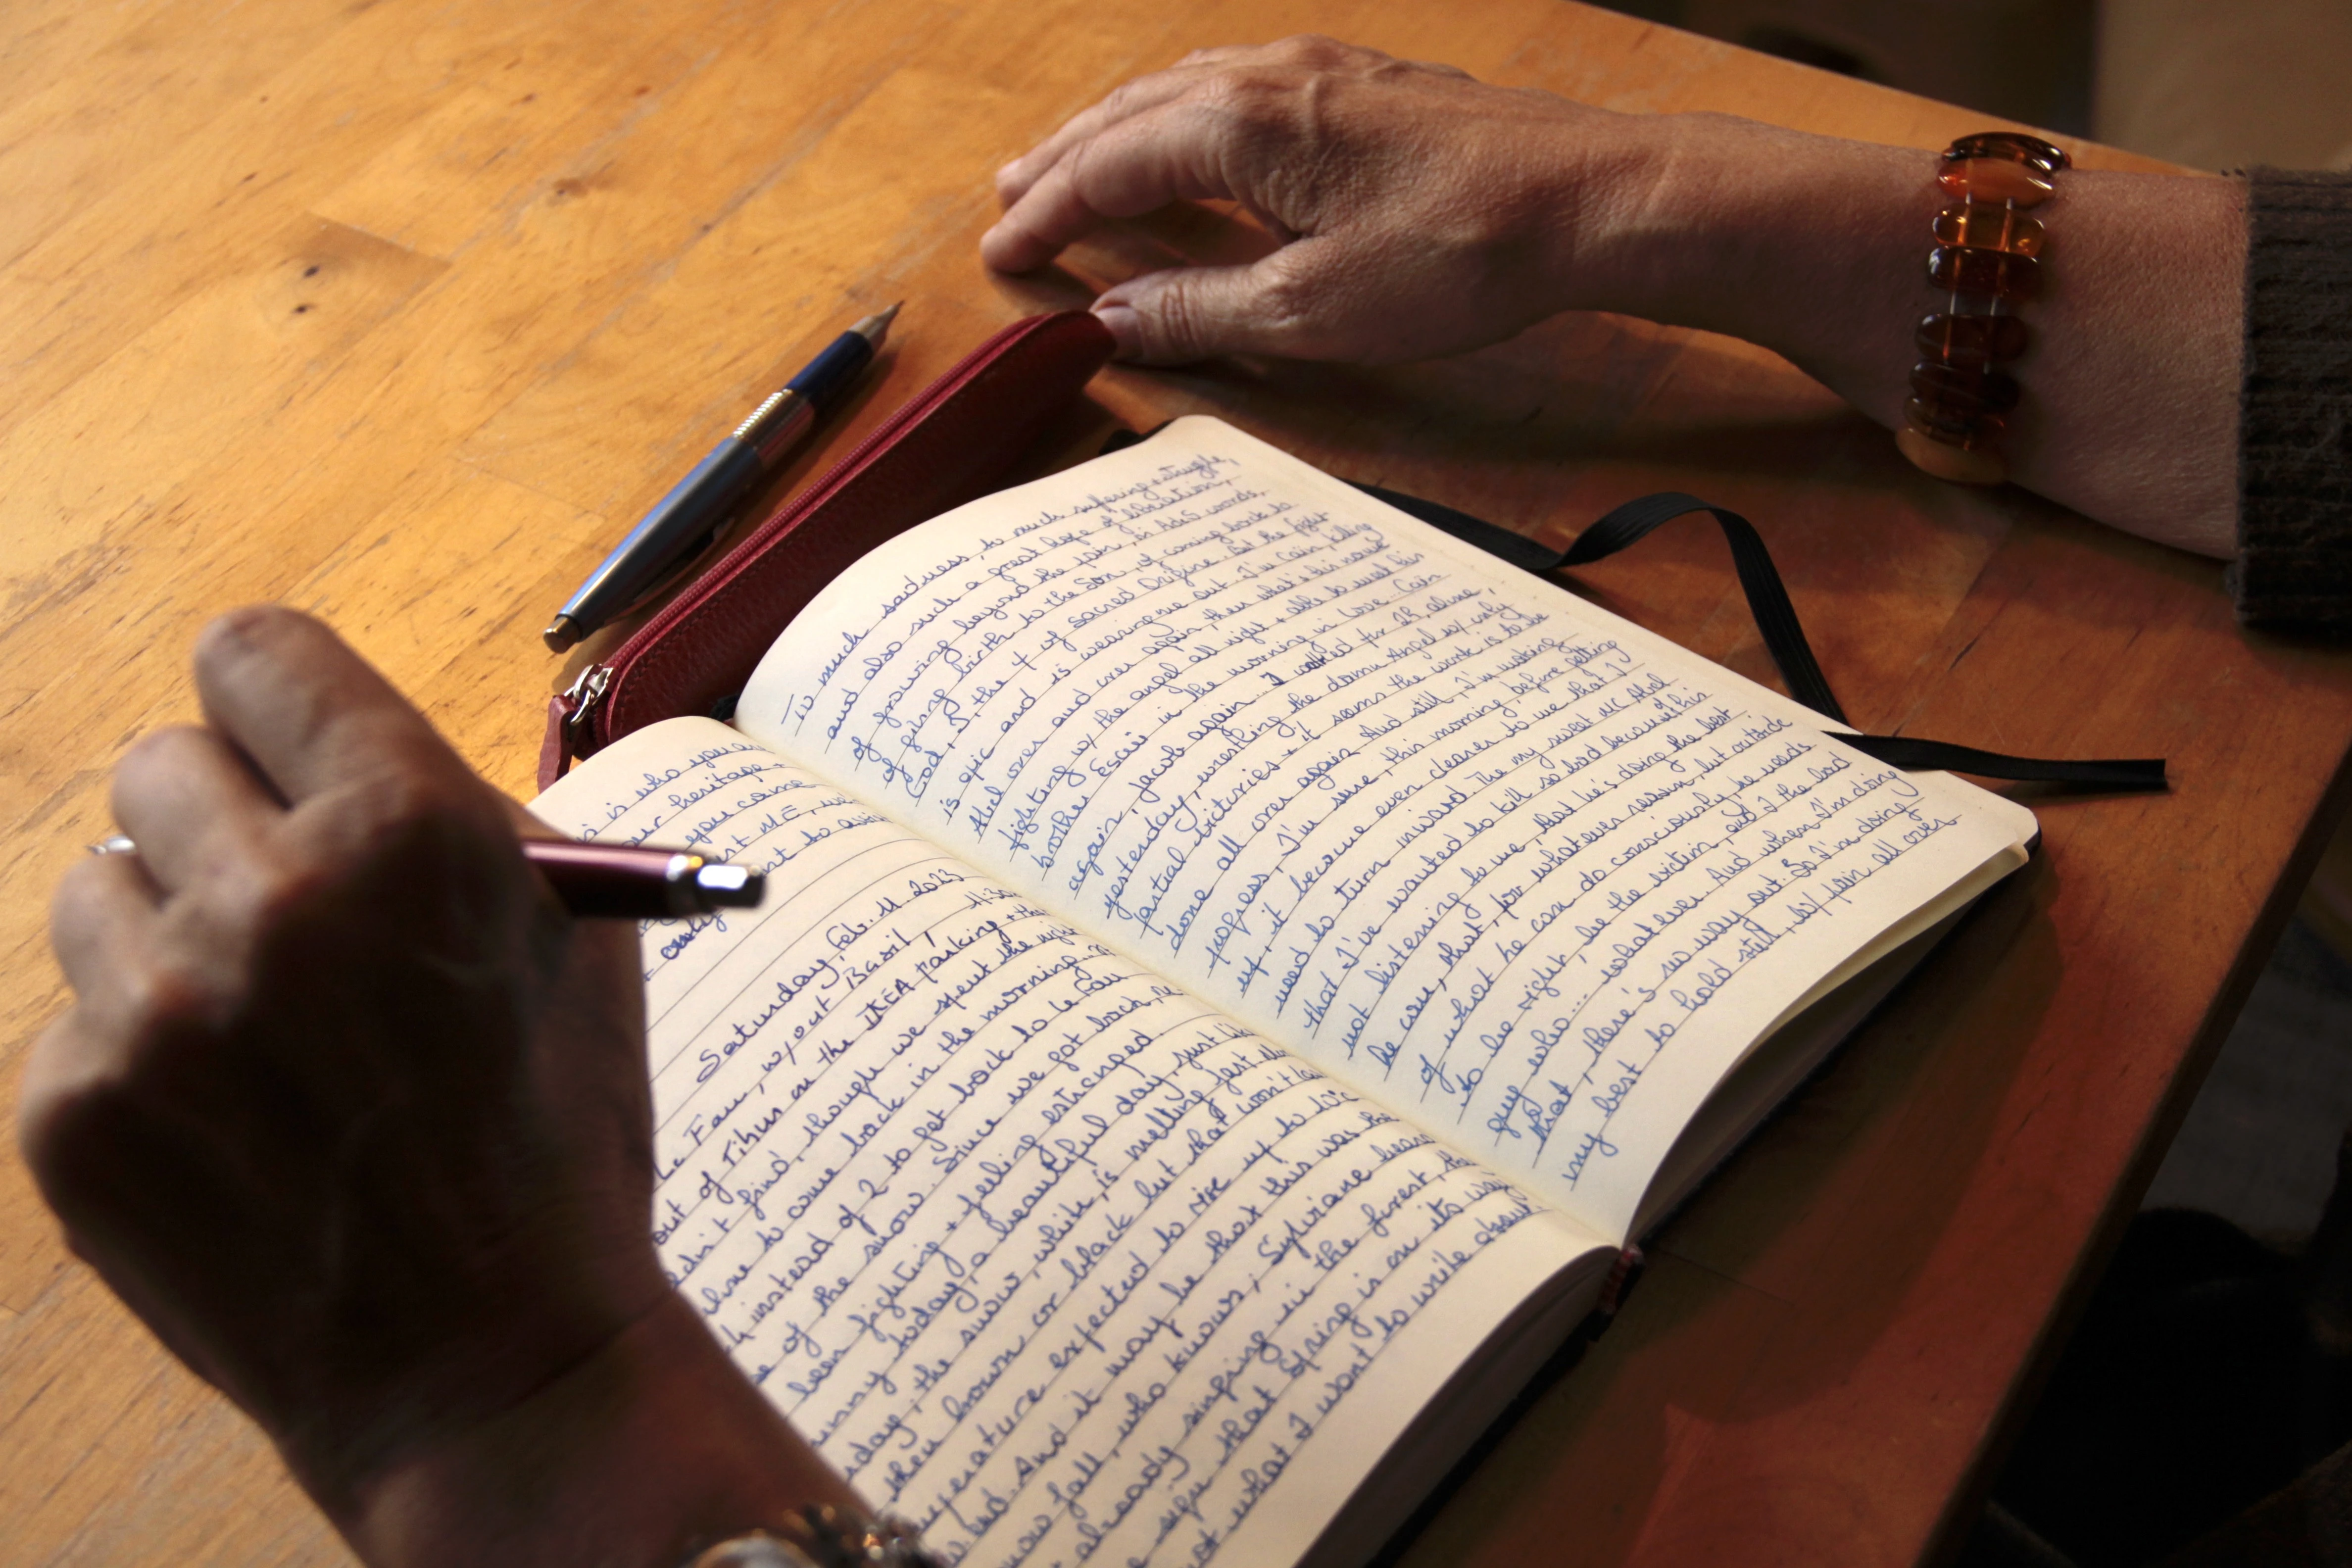 is who you are
our heritage.
you come
ME, we
just to
only
Saturday, Feb. 11 2023
Le Fau, w/out Basil, 11:30
out of Tihus in the IKEA parking + the
didn't find, though we spent the night
to come back in the morning.
instead of 2 to get back to Le Fau
of the snow. Since we got back,
been fighting + feeling estranged.
sunny today, a beautiful day, just like
the snow, white, is melting fast
then brown or black but that won't
temperature expected to rise up to 12°C
And it may be that this was the
snow fall, who knows; Sylviane
already singing in the forest,
sign that Spring is on its way
not what I want to write about.
so much sadness, so much suffering + struggle,
and also such a great hope of liberation,
of growing beyond the pain, in words,
of giving birth to the Son, of coming back to
God, the of my sacred Origine. But the fight
is epic and is wearing me out. I'm Cain, killing
Abel over and over again, then what's his name
fighting w/ the angel all night + able to meet his
brother Esau in the morning in Love. Cain
again, Jacob again... I for 2h alone,
yesterday, wrestling the damn Angel w/ only
partial victories + it seems the work is to be
done all over again. And still, I'm making
progress, I'm sure, this morning, before getting
up, it became even clearer to me that I
need to turn inward the my sweet Abel
that I've wanted to kill so bad because of his
not listening to me, that he's doing the best
he can, that, for whatever reason, but outside
of what he can do consciously he needs
to be right, be the victim, and I the bad
guy who... whatever. And when I'm doing
that, there's no way out. So I'm doing
my best to hold still, w/ pain all over